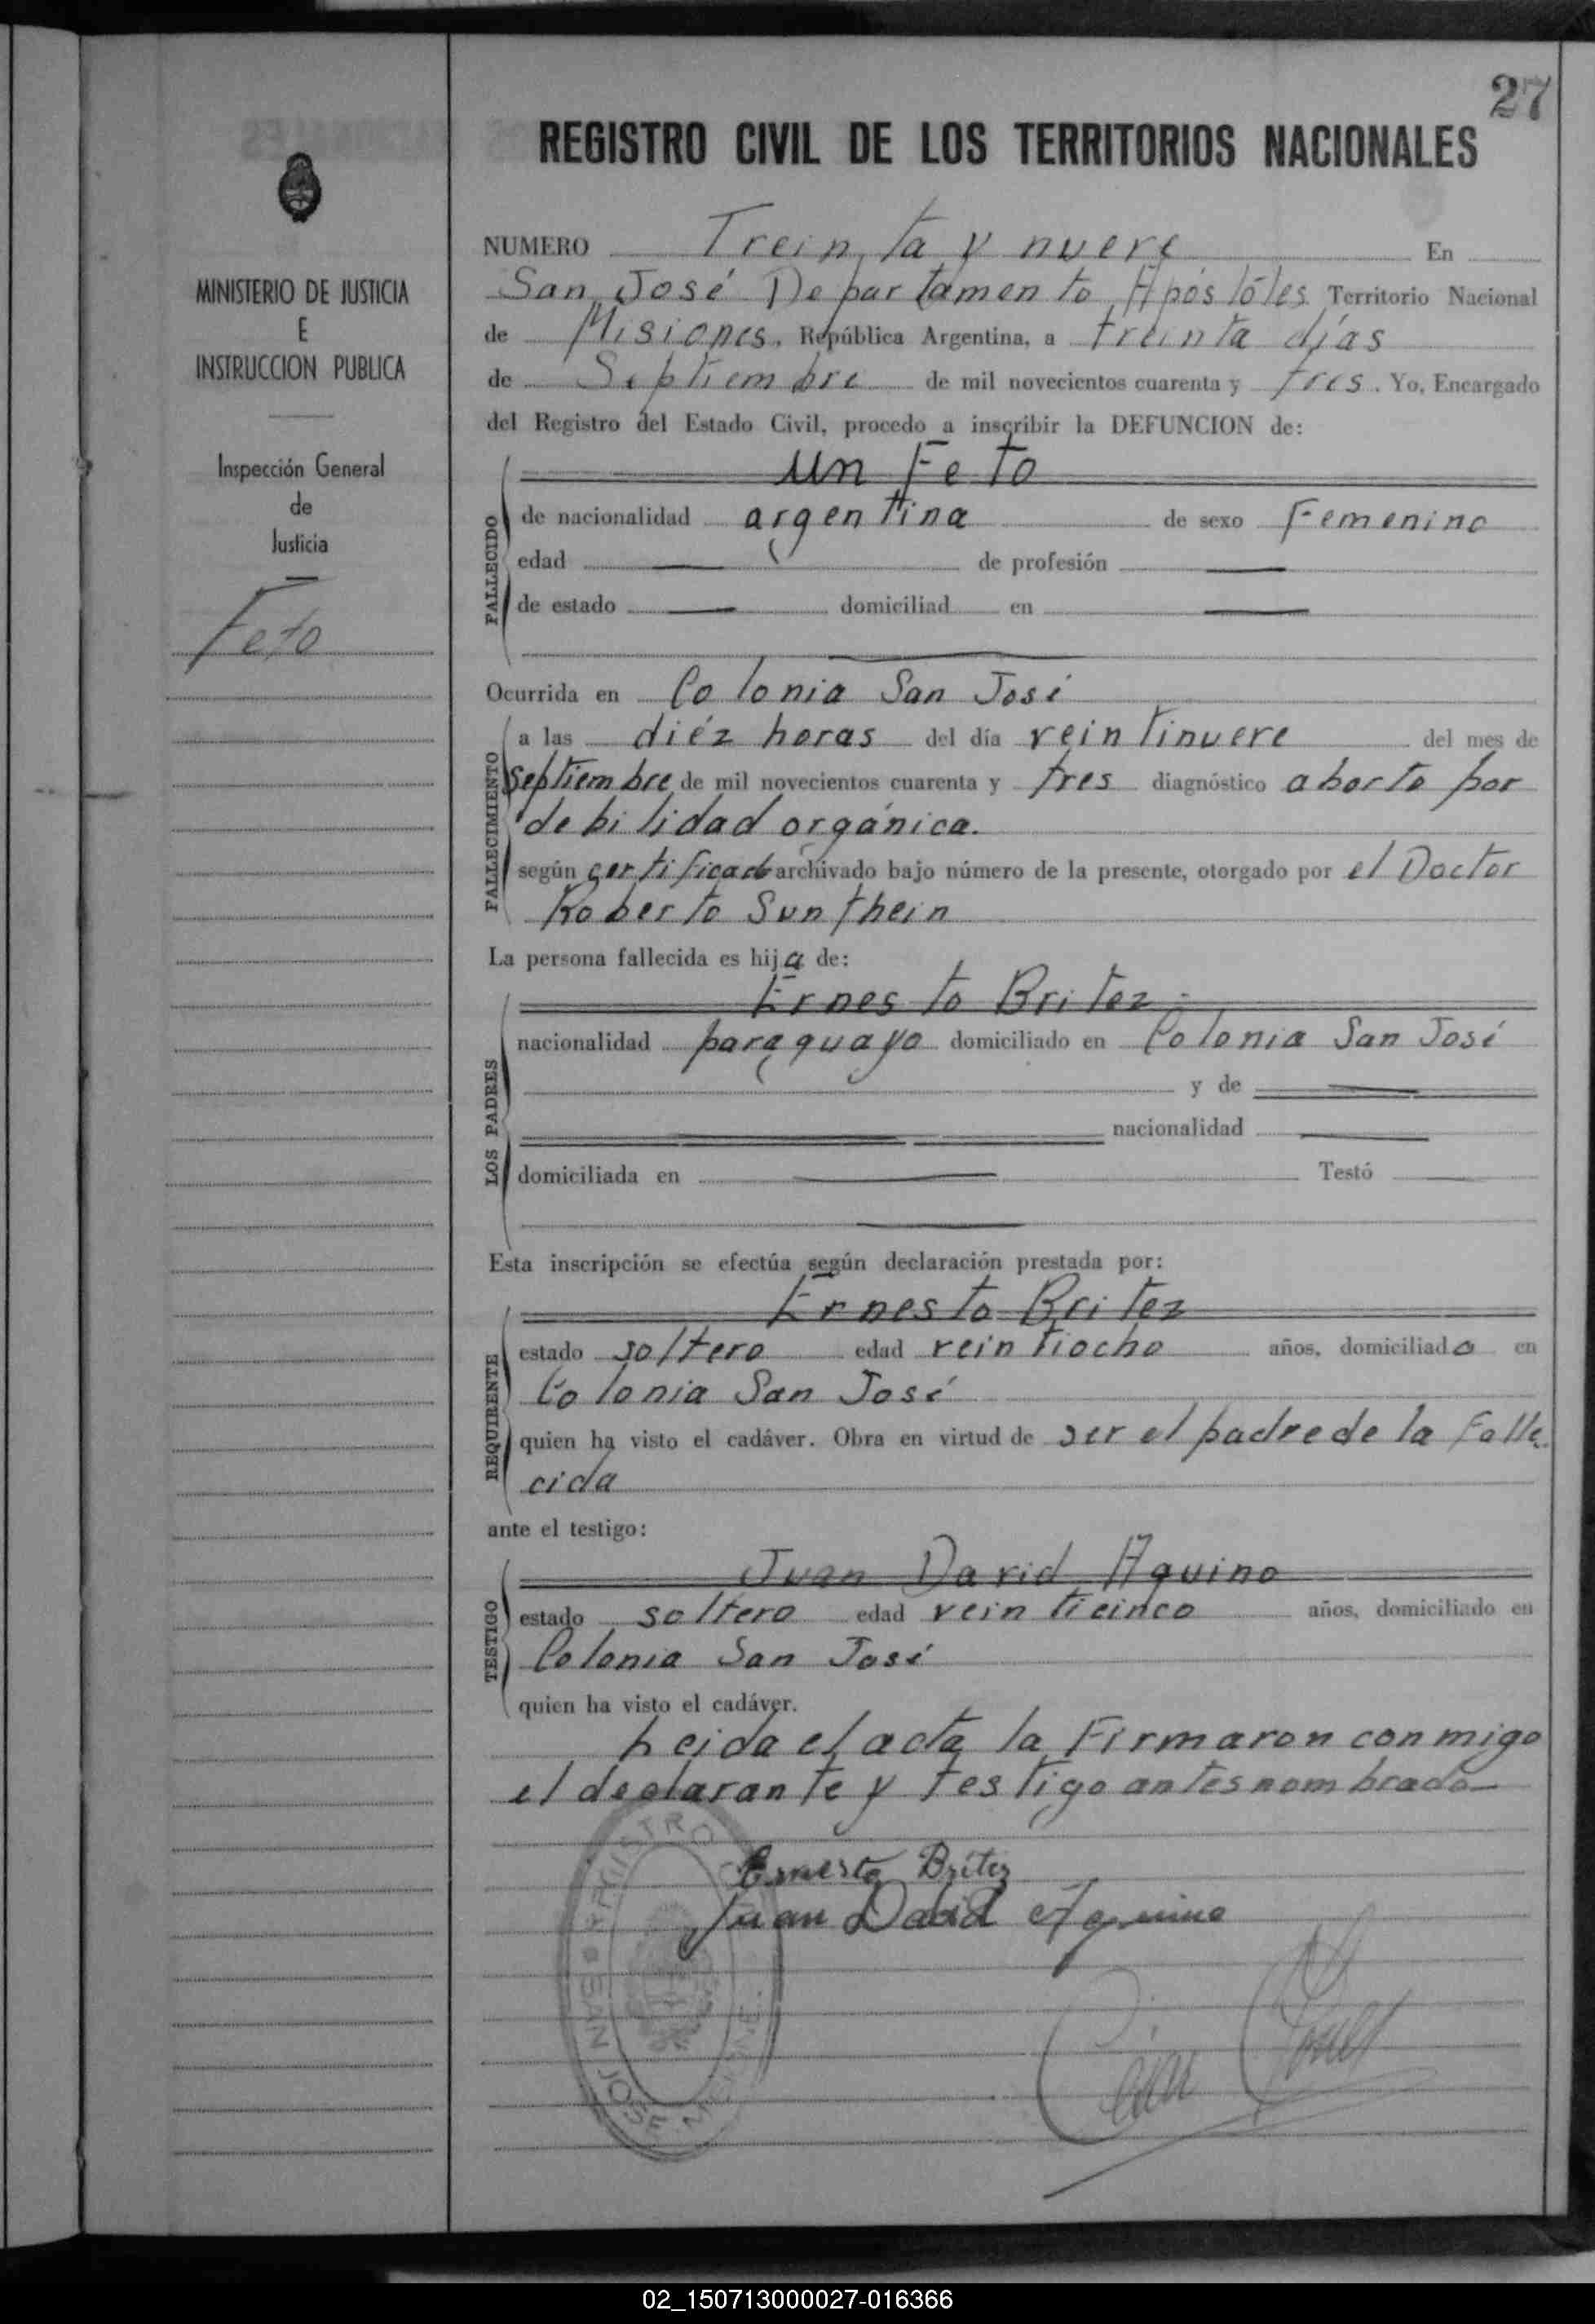 27
REGISTRO CIVIL DE LOS TERRITORIOS NACIONALES
MINISTERIO DE JUSTICIA
E
INSTRUCCION PUBLICA
Inspección General
de
Justicia
Feto
NUMERO Treinta y nueve En
San José Departamento Apóstóles Territorio Nacional
de Misiones, República Argentina, a treinta días
de Septiembre de mil novecientos cuarenta y tres. Yo, Encargado
del Registro del Estado Civil, procedo a inscribir la DEFUNCION de:
FALLECIDO
un Feto
de nacionalidad argentina de sexo Femenino
edad — de profesión —
de estado — domiciliad en —
Ocurrida en Colonia San José
FALLECIMIENTO
a las diéz horas del día veintinueve del mes de
Septiembre de mil novecientos cuarenta y tres diagnóstico aborto por
debilidad orgánica.
según certificado archivado bajo número de la presente, otorgado por el Doctor
Roberto Sunthein
La persona fallecida es hija de:
LOS PADRES
Ernesto Britez
nacionalidad paraguayo domiciliado en Colonia San José
y de —
nacionalidad —
domiciliada en — Testó
Esta inscripción se efectúa según declaración prestada por:
REQUIRENTE
Ernesto Britez
estado soltero edad veintiocho años, domiciliado en
Colonia San José
quien ha visto el cadáver. Obra en virtud de ser el padre de la Falle
cida
ante el testigo:
TESTIGO
Juan David Aquino
estado soltero edad veinticinco años, domiciliado en
Colonia San José
quien ha visto el cadáver.
Leida el acta la Firmaron conmigo
el declarante y testigo antes nombrado
Ernesto Britez
Juan Dabid Aquino
REGISTRO
SAN JOSE
02_150713000027-016366